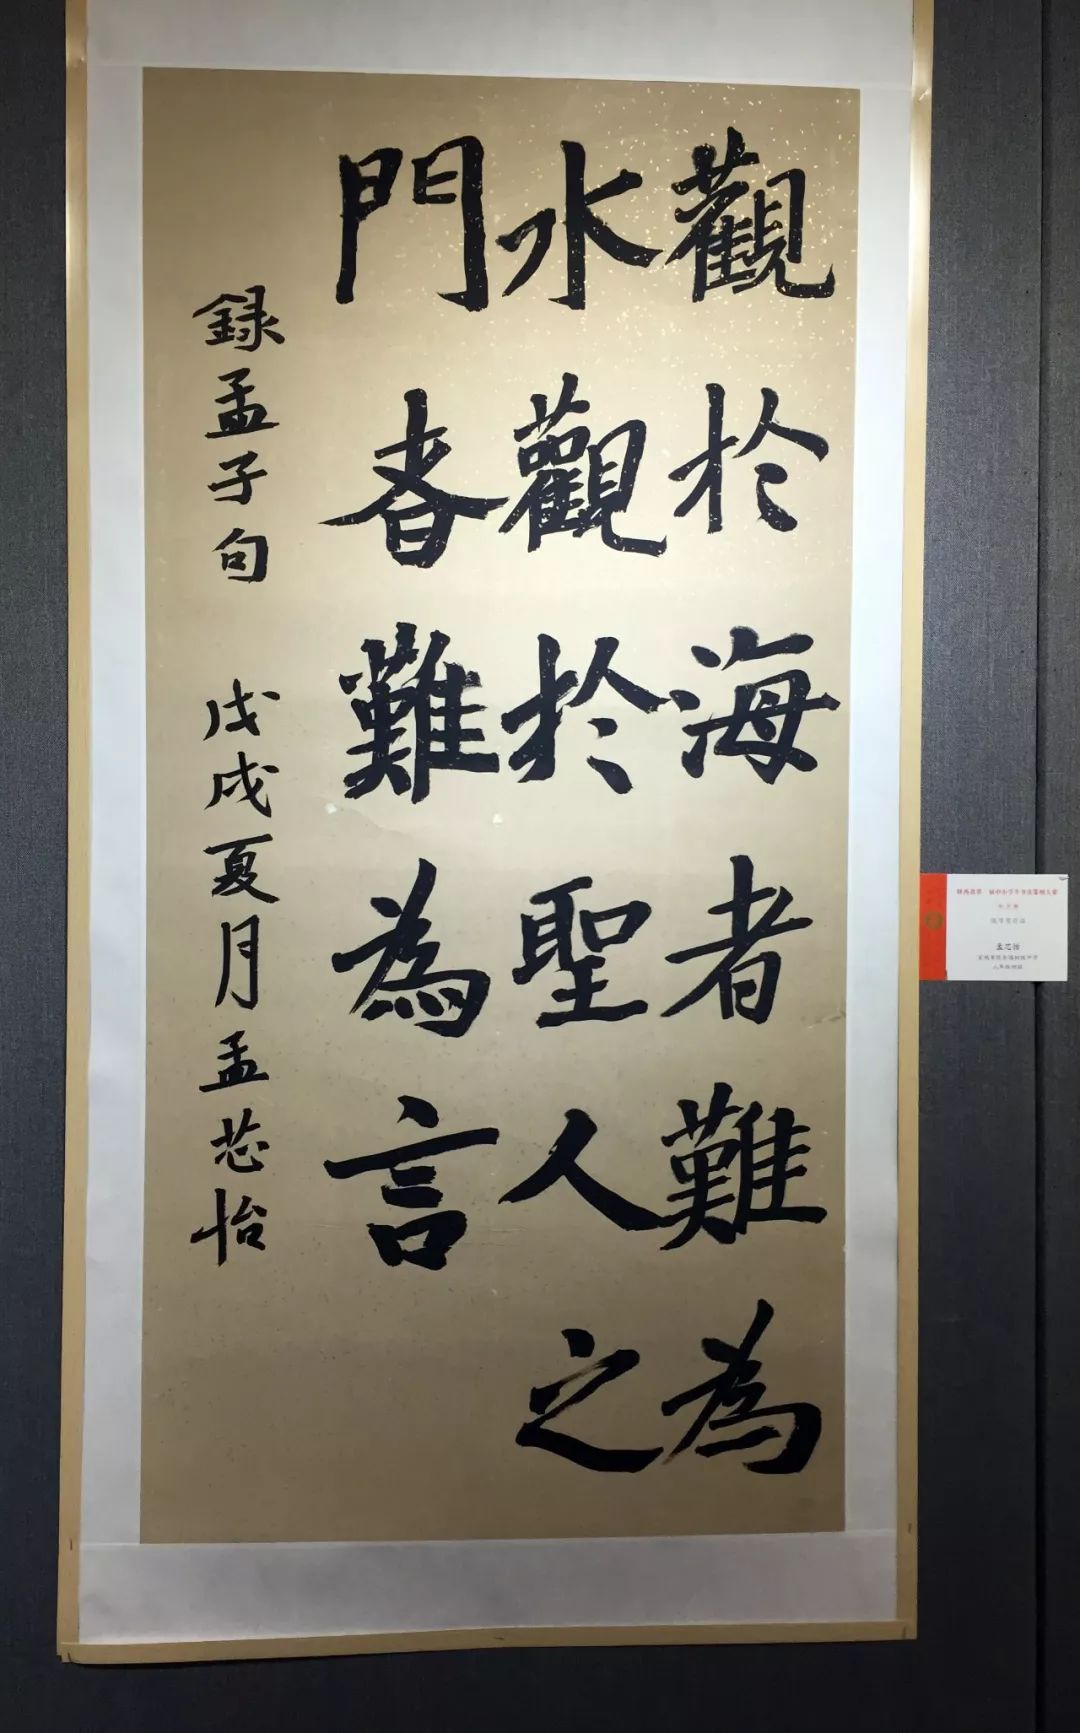 觀於海者難為
水觀於聖人之
門者難為言
録孟子句 戊戌夏月孟芯怡
孟芯怡